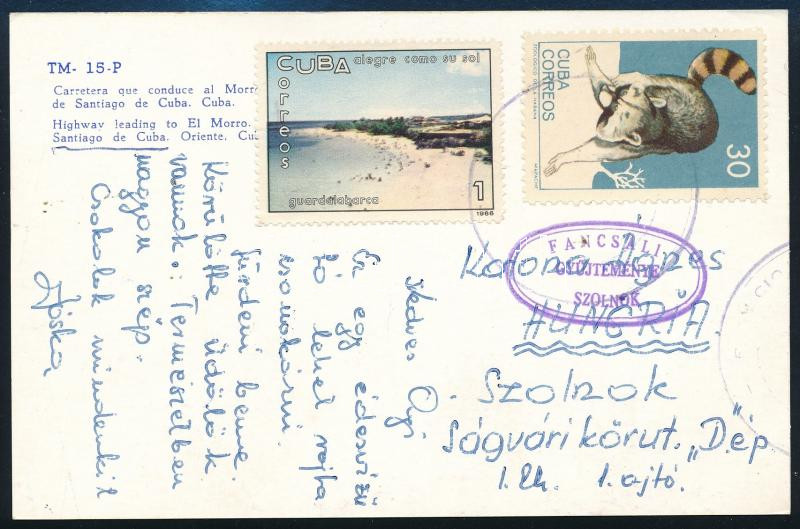 TM- 15-P
Carretera que conduce al Morr
de Santiago de Cuba. Cuba.
Highway leading to El Morro.
Santiago de Cuba. Oriente. Cu
CUBA alegre como su sol
Correos
guardalabarca
1
1966
CUBA
CORREOS
ZOOLOGICO DE LA HABANA
MAPACHE
30
FANCSALI
GYŰJTEMÉNYE
SZOLNOK
Kedves Ági
Ez egy édesvízű
tó lehet rajta
csónakázni
fürdeni benne.
Körülötte üdülők
vannak. Természetben
nagyon szép.
Csokolok mindenkit
Jóska
Katona Ágnes
HUNGRIA.
Szolnok
Ságvári körut. „D" ép
1. ajtó.